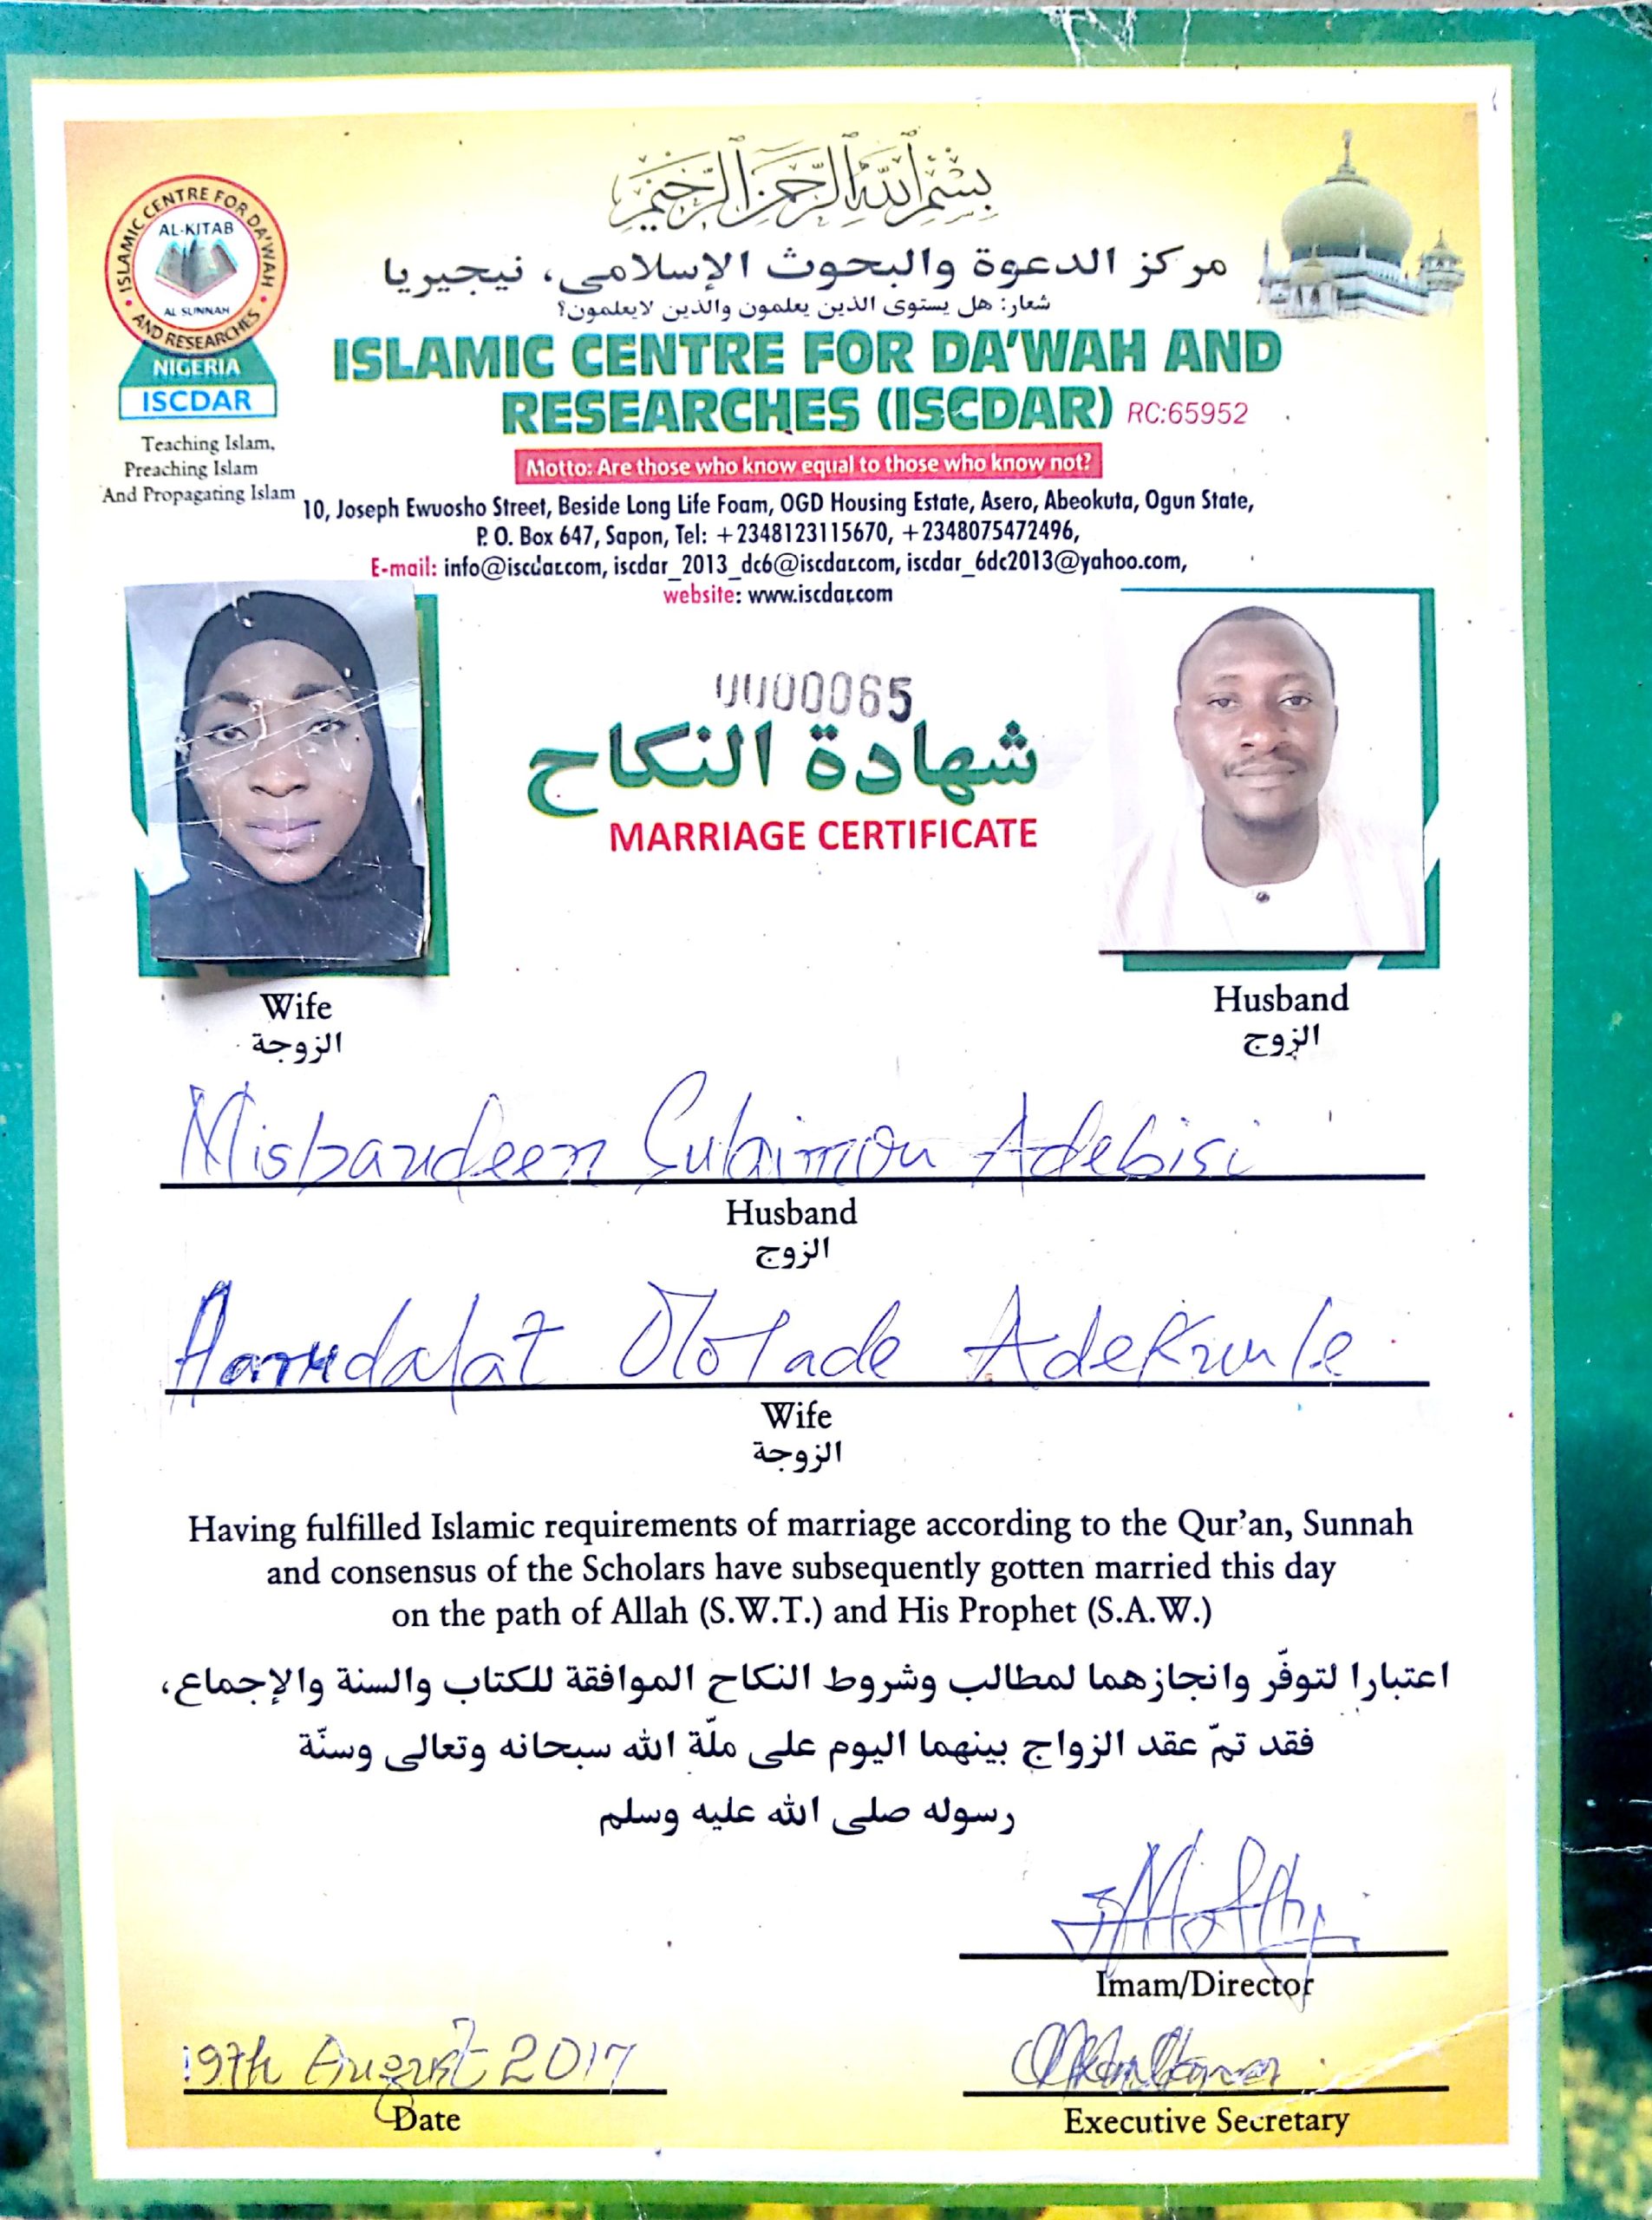 بسم الله الرحمن الرحيم
ISLAMIC CENTRE FOR DA'WAH AND RESEARCHES
AL-KITAB
AL SUNNAH
NIGERIA
ISCDAR
Teaching Islam,
Preaching Islam
And Propagating Islam
مركز الدعوة والبحوث الإسلامى، نيجيريا
شعار: هل يستوى الذين يعلمون والذين لايعلمون؟
ISLAMIC CENTRE FOR DA'WAH AND
RESEARCHES (ISCDAR) RC:65952
Motto: Are those who know equal to those who know not?
10, Joseph Ewuosho Street, Beside Long Life Foam, OGD Housing Estate, Asero, Abeokuta, Ogun State,
P. O. Box 647, Sapon, Tel: +2348123115670, +2348075472496,
E-mail: info@iscdar.com, iscdar_2013_dc6@iscdar.com, iscdar_6dc2013@yahoo.com,
website: www.iscdar.com
0000065
شهادة النكاح
MARRIAGE CERTIFICATE
Wife
الزوجة
Husband
الزوج
Adebisi
Husband
الزوج
Adekunle
Wife
الزوجة
Having fulfilled Islamic requirements of marriage according to the Qur'an, Sunnah
and consensus of the Scholars have subsequently gotten married this day
on the path of Allah (S.W.T.) and His Prophet (S.A.W.)
اعتبارا لتوفّر وانجازهما لمطالب وشروط النكاح الموافقة للكتاب والسنة والإجماع،
فقد تمّ عقد الزواج بينهما اليوم على ملّة الله سبحانه وتعالى وسنّة
رسوله صلى الله عليه وسلم
Imam/Director
19th August 2017
Date
Executive Secretary